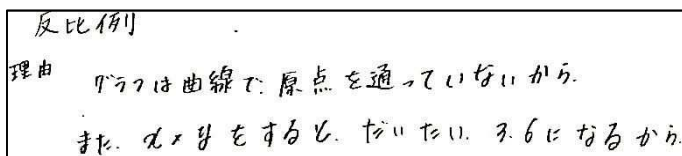 反比例
理由 グラフは曲線で、原点を通っていないから。
また、x×yをすると、だいたい、3.6になるから